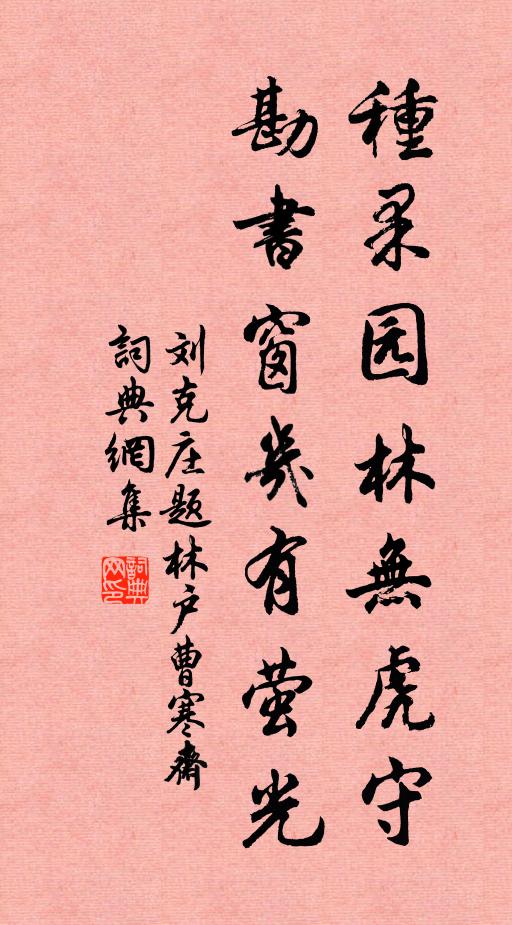 種果园林無虎守
勘書窗幾有萤光
刘克庄题林户曹寒齋
詞典網集
詞典网印